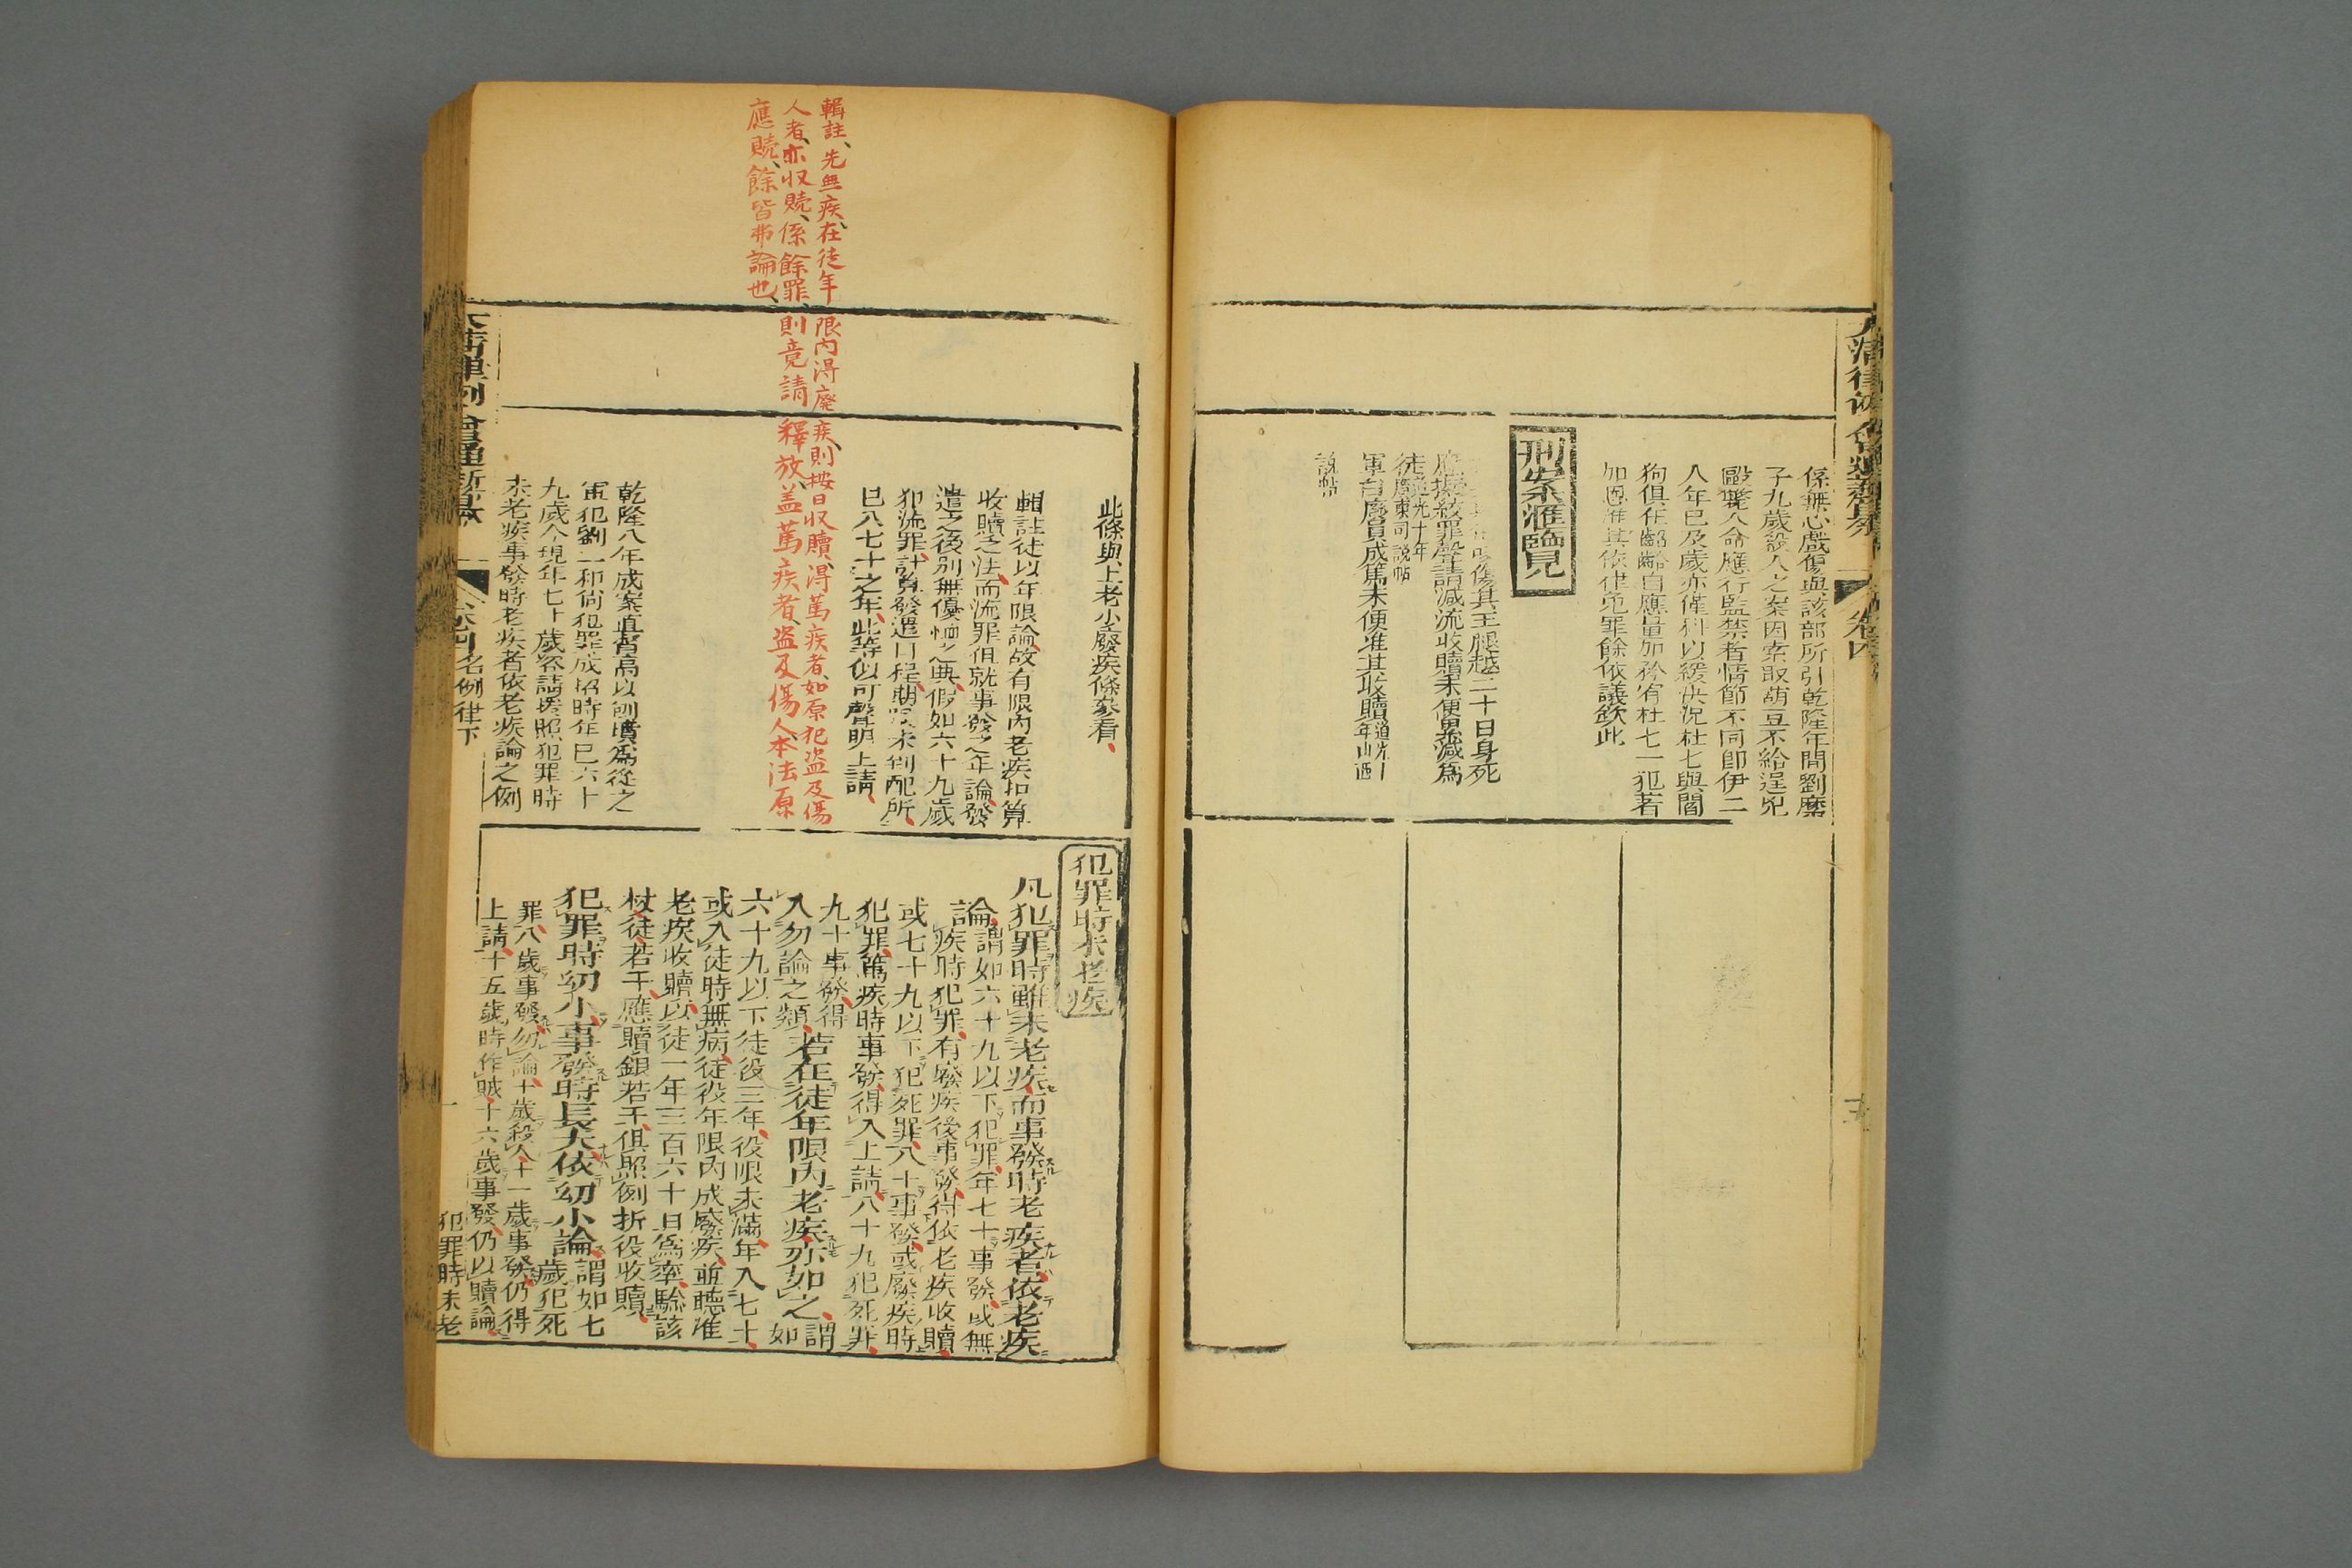 係無心戲傷與該部所引乾隆年間劉縻
子九歲毆人之案因索取葫豆不給逞兇
毆斃人命應行監禁者情節不同即伊二
人年已及歲亦僅科以緩決況杜七與閻
狗俱在齠齡自應量加矜宥杜七一犯著
加恩准其依律免罪餘依議欽此
刑案滙覽
傷其王腿越二十日身死
應擬絞罪聲請減流收贖未便累減爲
徒道光十年廣東司說帖
軍台廢員成篤未便准其收贖道光十年山西
說帖
卷四
輯註、先無疾、在徒年限內得廢疾、則按日收贖、得篤疾者、如原犯盗及傷
人者、亦收贖、係餘罪、則竟請釋放、盖篤疾者、盗及傷人、本法原
應贖、餘皆弗論也、
此條與上老小廢疾條參看、
輯註徒以年限論、故有限內老疾扣算
收贖之法、而流罪但就事發之年論、發
遣之後別無優恤之典、假如六十九歲
犯流罪、計算發遣日程、期限未到配所、
已入七十之年、此等似可聲明上請、
乾隆八年成案直督高以刨墳爲從之
軍犯劉二和尚犯罪成招時年已六十
九歲今現年七十歲咨請援照犯罪時
未老疾事發時老疾者依老疾論之例
犯罪時未老疾
凡犯罪時雖未老疾、而事發時老疾者、依老疾
論、謂如六十九以下、犯罪、年七十事發、或無
疾時犯罪、有廢疾後事發、得依老疾收贖、
或七十九以下、犯死罪、八十事發、或廢疾時
犯罪、篤疾時事發、得入上請、八十九犯死罪、
九十事發、得
入勿論之類、若在徒年限內老疾、亦如之、謂如
六十九以下、徒役三年、役限未滿、年入七十、
或入徒時無病、徒役年限內成廢疾、並聽准
老疾收贖、以徒一年三百六十日爲率、驗該
杖徒若干、應贖銀若干、俱照例折役收贖、
犯罪時幼小、事發時長大、依幼小論、謂如七歲犯死
罪、八歲事發、勿論、十歲殺人、十一歲事發、仍得
上請、十五歲時作賊、十六歲事發、仍以贖論、
名例律下
犯罪時未老